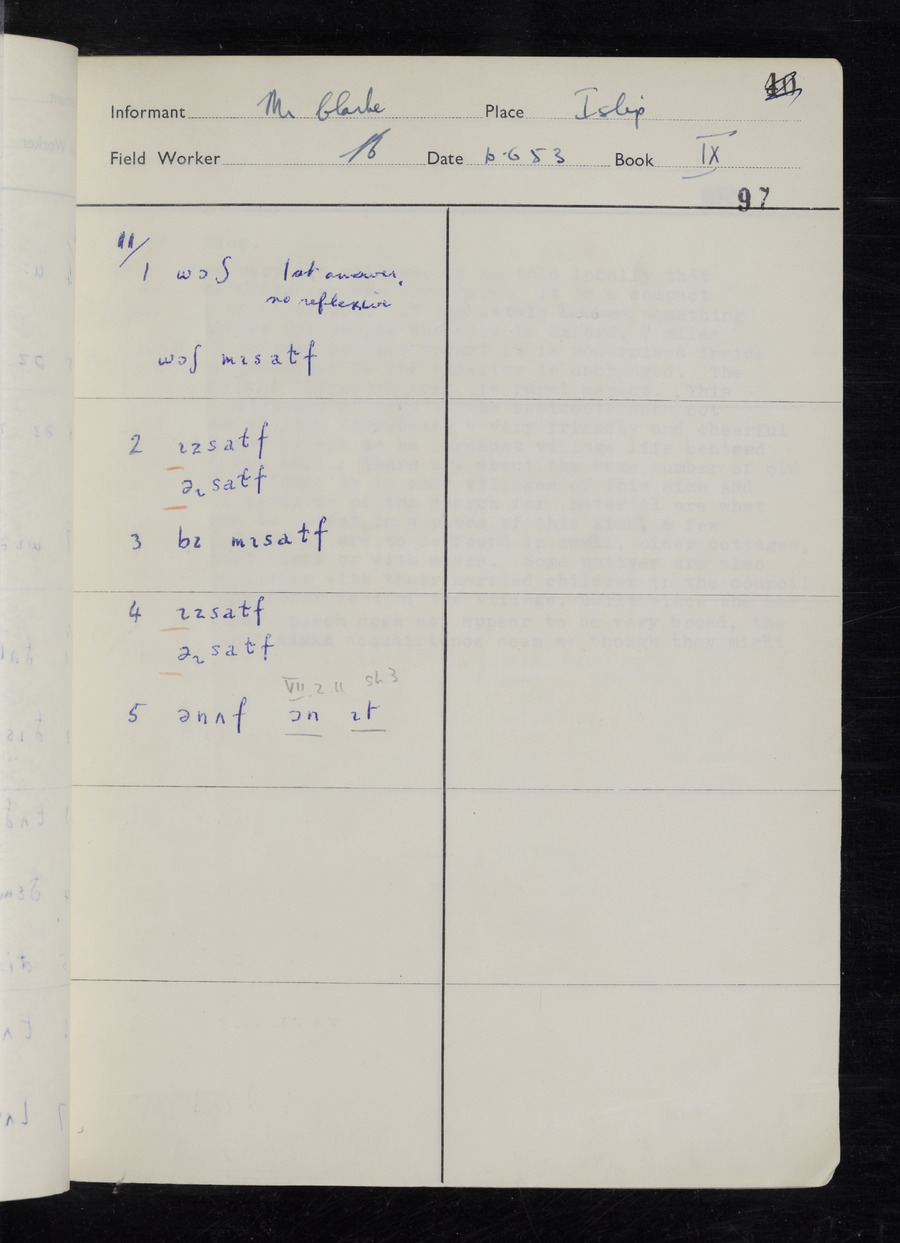 Informant Mr Clarke Place Islip
Field Worker Date 6·6 53 Book IX
97
11/
1 wɔʃ 1st answer,
no reflexive
wɔʃ mɪsatf
2 ɪzsatf
əɪsatf
3 bɪ mɪsatf
4 ɪzsatf
əɪsatf
VII. 2. 11 sh. 3
5 ənʌf ɔn ɪt